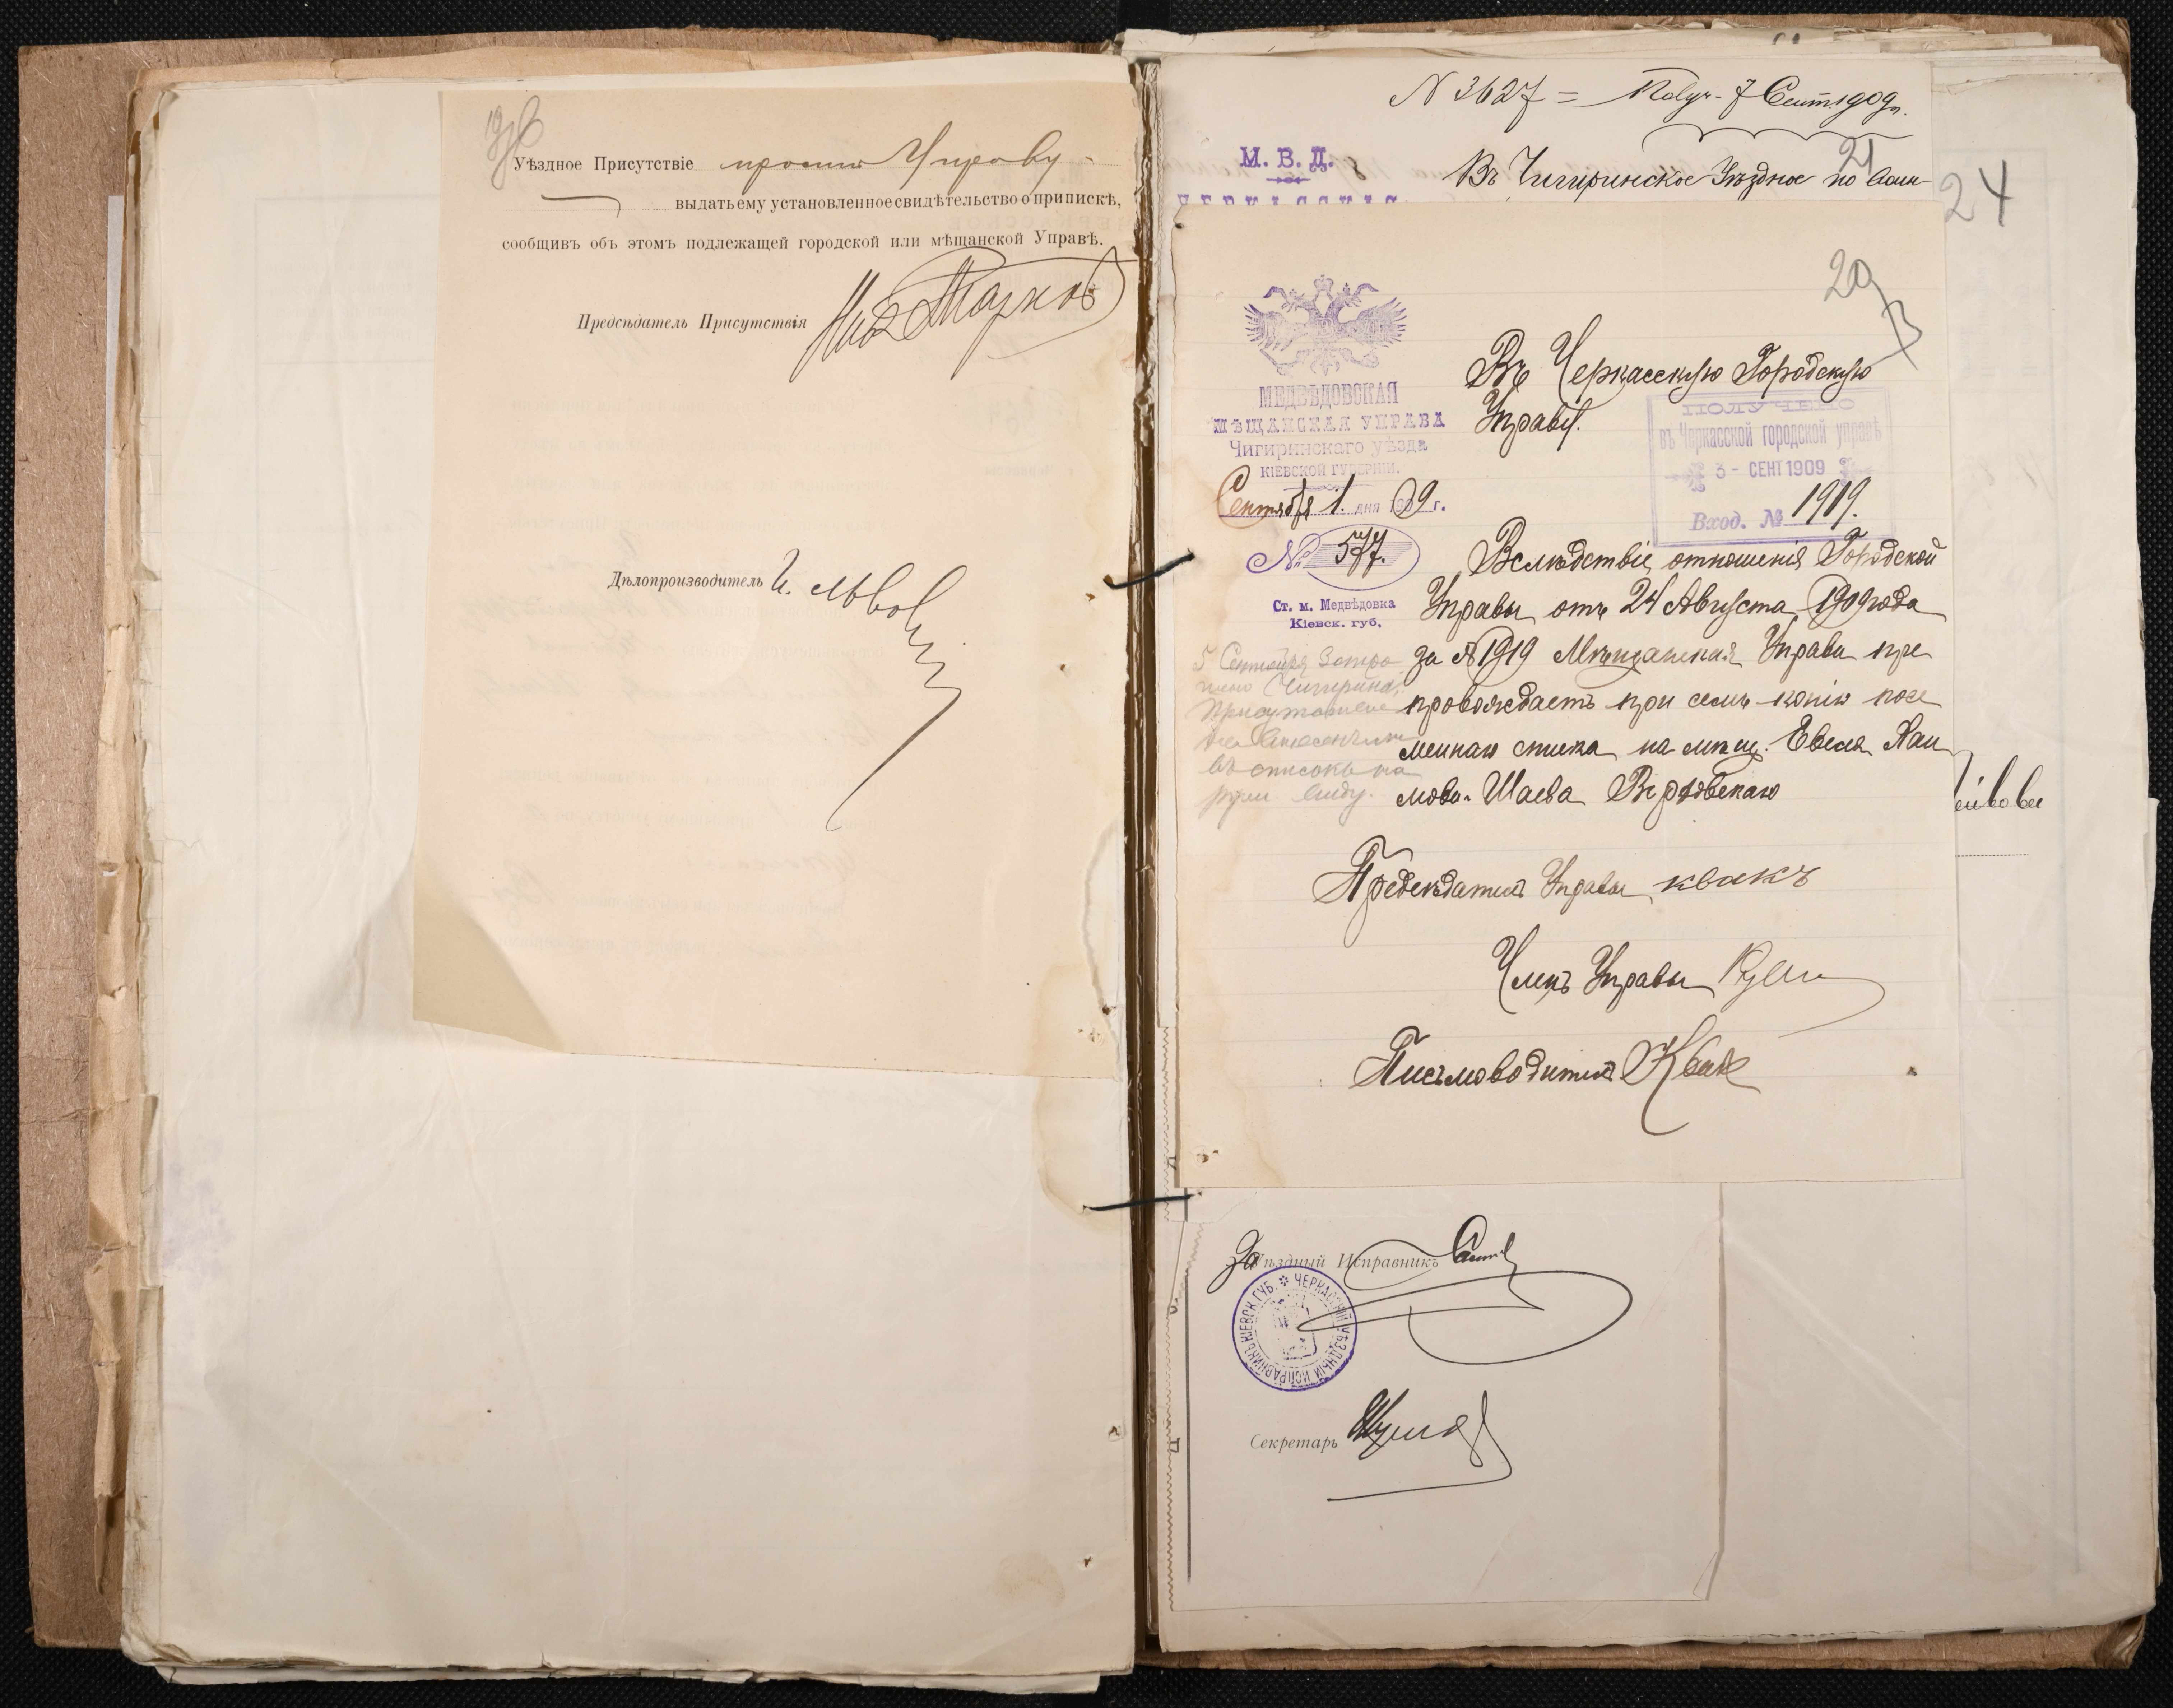 Уѣздное Присутствіе проситъ Управу
выдать ему установленное свидѣтельство о припискѣ,
сообщивъ объ этомъ подлежащей городской или мѣщанской Управѣ.
Предсѣдатель Присутствія
Дѣлопроизводитель
N 3627 = Получ. 7 Сент. 1909 г.
М. В. Д.
21
Въ Чигиринское Уѣздное по воин
24
ЧЕРКАССКАГО
20
МЕДВѢДОВСКАЯ
МѢЩАНСКАЯ УПРАВА
Чигиринскаго уѣзда
КІЕВСКОЙ ГУБЕРНІИ.
Сентября 1. дня 1909 г.
№ 577.
Ст. м. Медвѣдовка
Кіевск. губ.
Въ Черкасскую Городскую
Управу.
ПОЛУЧЕНО
въ Черкасской городской управѣ
3 - СЕНТ 1909
Вход. № 1919.
Вслѣдствіе отношенія Городской
Управы отъ 24 Августа 1909 года
за № 1919 Мѣщанская Управа пре
провождаетъ при семъ копію посе
мейнаго списка на мѣщ. Евеля Хаи
мова-Шаева Верховскаго
5 Сентября
Чигирин.
въ списокъ
Предсѣдатель Управы Квакъ
Членъ Управы
Письмоводитель Квак
За Уѣздный Исправникъ
КІЕВСК. ГУБ. * ЧЕРКАССКІЙ УѢЗДНЫЙ ИСПРАВНИКЪ
Секретарь